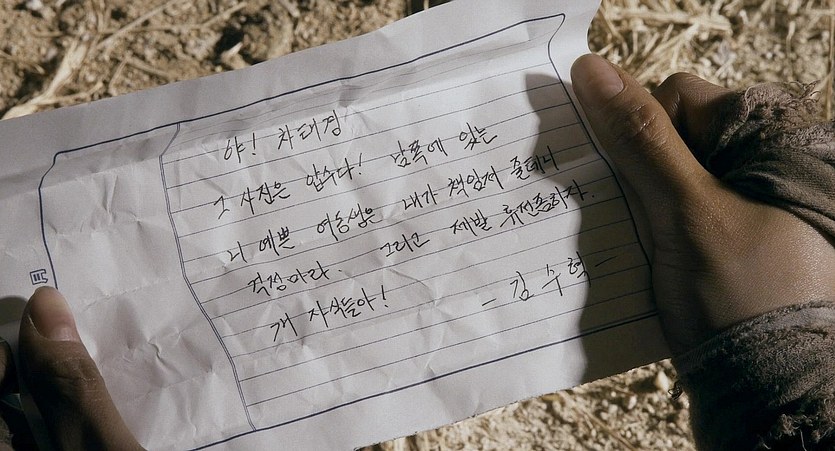 야! 차태경
그 사진은 압수다! 남쪽에 있는
니 예쁜 여동생은 내가 책임져 줄테니
걱정마라. 그리고 제발 휴전좀하자.
개 자식들아!
- 김수혁 -